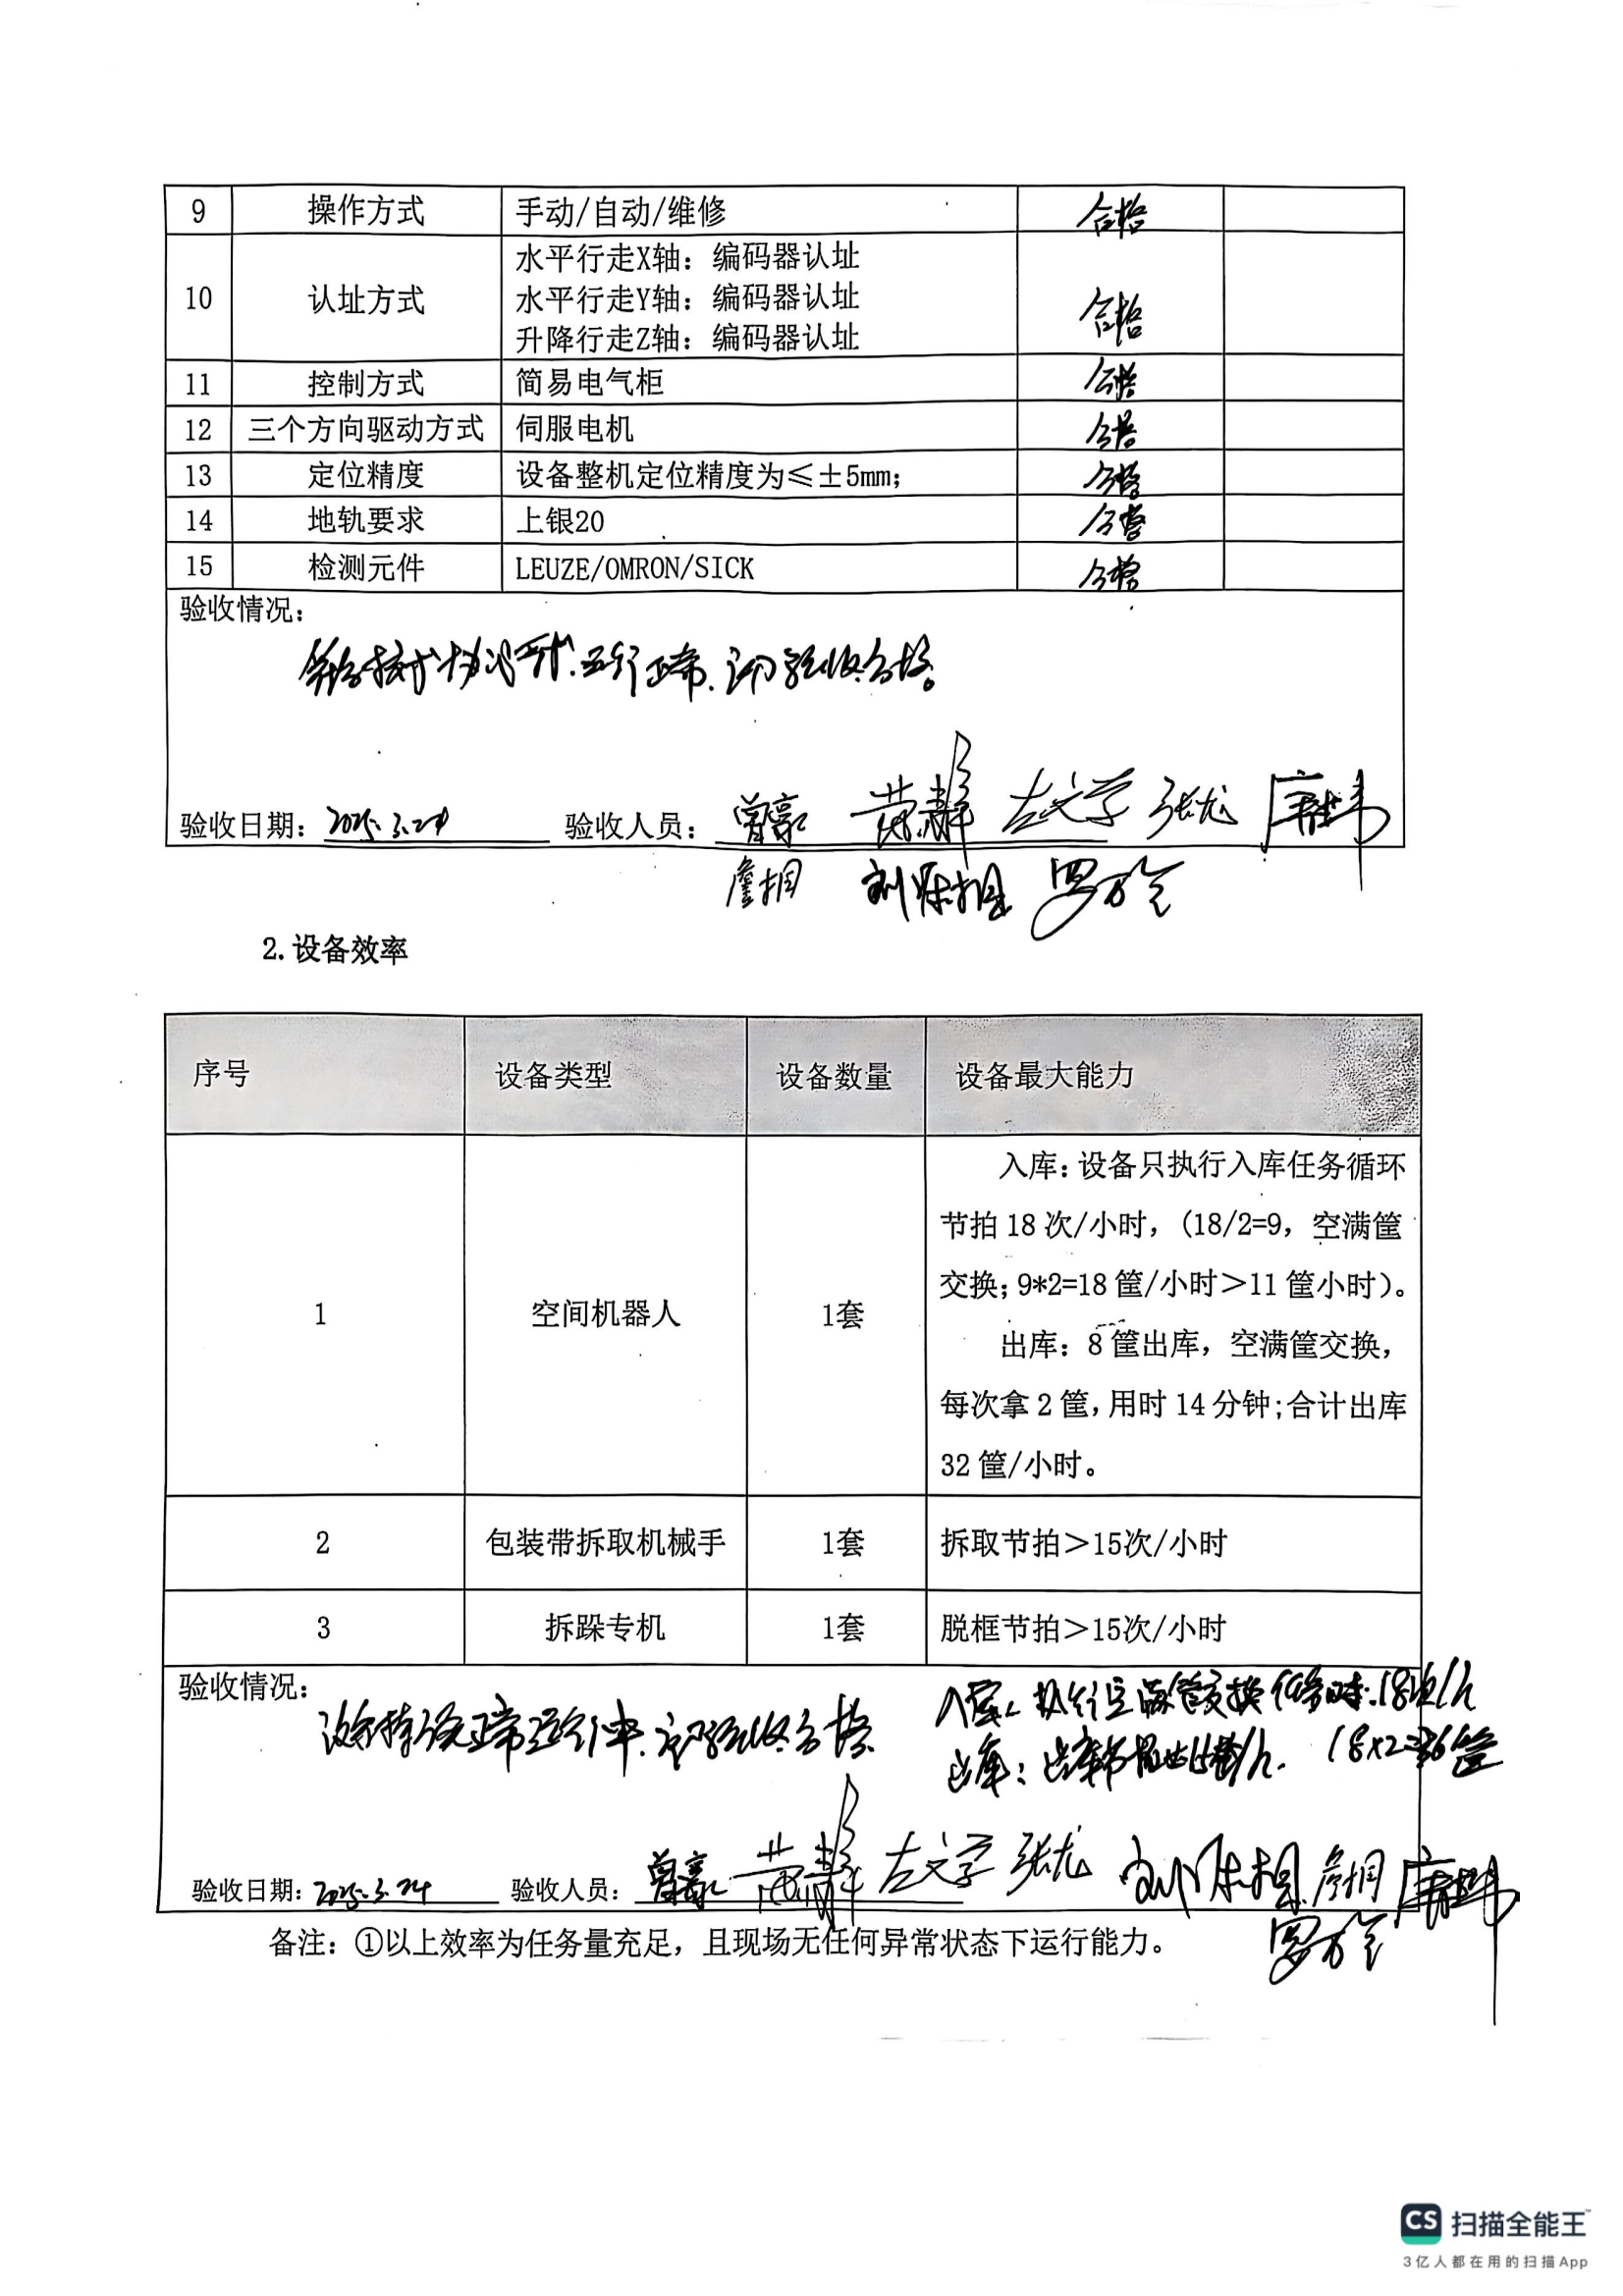 9 操作方式 手动/自动/维修 合格
水平行走X轴：编码器认址
10 认址方式 水平行走Y轴：编码器认址 合格
升降行走Z轴：编码器认址
11 控制方式 简易电气柜 合格
12 三个方向驱动方式 伺服电机 合格
13 定位精度 设备整机定位精度为≤±5mm； 合格
14 地轨要求 上银20 合格
15 检测元件 LEUZE/OMRON/SICK 合格
验收情况：
符合技术协议要求.运行正常.验收合格。
验收日期：2025.3.24 验收人员：曾豪 黄静 左文学 张龙
詹桐 罗万全
2.设备效率
序号 设备类型 设备数量 设备最大能力
入库：设备只执行入库任务循环
节拍18次/小时，（18/2=9，空满筐
交换；9*2=18筐/小时＞11筐小时）。
1 空间机器人 1套
出库：8筐出库，空满筐交换，
每次拿2筐，用时14分钟；合计出库
32筐/小时。
2 包装带拆取机械手 1套 拆取节拍＞15次/小时
3 拆跺专机 1套 脱框节拍＞15次/小时
验收情况：
设备 正常运行中.验收合格 入库：执行空满筐交换任务时.18次/h
出库：出库节拍 /h. 18×2=36筐
验收日期：2025.3.24 验收人员：曾豪 黄静 左文学 张龙 詹桐
罗万全
备注：①以上效率为任务量充足，且现场无任何异常状态下运行能力。
CS 扫描全能王
3亿人都在用的扫描App